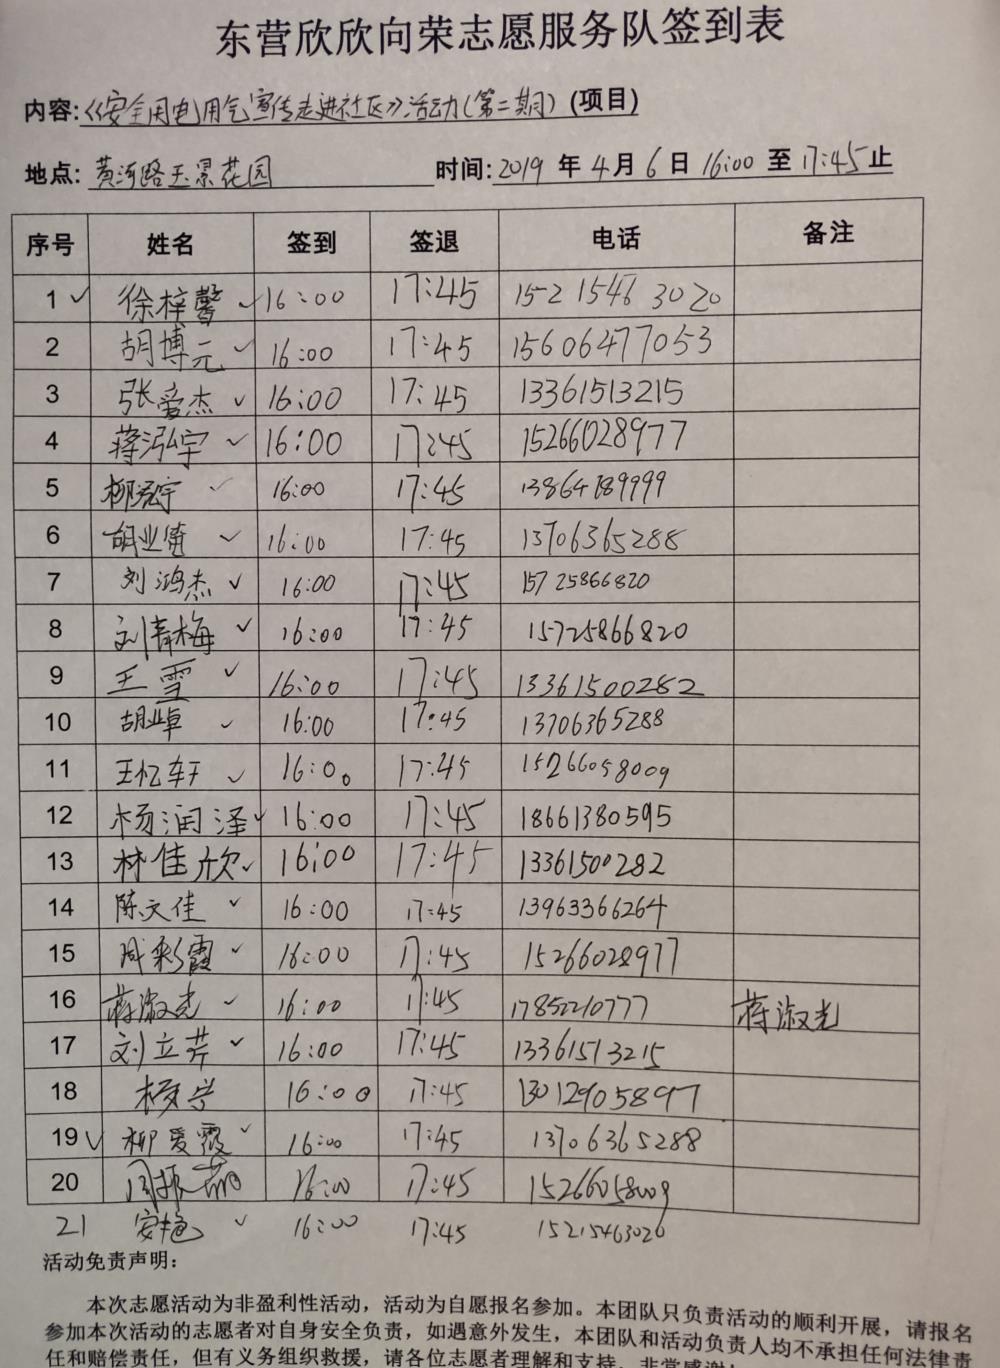 东营欣欣向荣志愿服务队签到表
内容:《安全用电用气宣传走进社区》活动(第二期) (项目)
地点: 黄河路玉景花园 时间: 2019 年 4 月 6 日 16:00 至 17:45 止
序号 姓名 签到 签退 电话 备注
1 ✓ 徐梓馨 ✓ 16:00 17:45 15215463020
2 胡博元 ✓ 16:00 17:45 15606477053
3 张爱杰 ✓ 16:00 17:45 13361513215
4 蒋泓宇 ✓ 16:00 17:45 15266028977
5 柳泓宇 ✓ 16:00 17:45 13864189999
6 胡业倩 ✓ 16:00 17:45 13706365288
7 刘鸿杰 ✓ 16:00 17:45 15725866820
8 刘青梅 ✓ 16:00 17:45 15725866820
9 王雪 ✓ 16:00 17:45 13361500282
10 胡业卓 ✓ 16:00 17:45 13706365288
11 王忆轩 ✓ 16:00 17:45 15266058009
12 杨润泽 ✓ 16:00 17:45 18661380595
13 林佳欣 ✓ 16:00 17:45 13361500282
14 陈文佳 ✓ 16:00 17:45 13963366264
15 周彩霞 ✓ 16:00 17:45 15266028977
16 蒋淑光 ✓ 16:00 17:45 17852210777 蒋淑光
17 刘立芹 ✓ 16:00 17:45 13361513215
18 16:00 17:45 13012905897
19 ✓ 柳爱霞 ✓ 16:00 17:45 13706365288
20 周振茹 16:00 17:45 15266058009
21 安艳 ✓ 16:00 17:45 15215463020
活动免责声明：
本次志愿活动为非盈利性活动，活动为自愿报名参加。本团队只负责活动的顺利开展，请报名
参加本次活动的志愿者对自身安全负责，如遇意外发生，本团队和活动负责人均不承担任何法律责
任和赔偿责任，但有义务组织救援，请各位志愿者理解和支持。非常感谢！